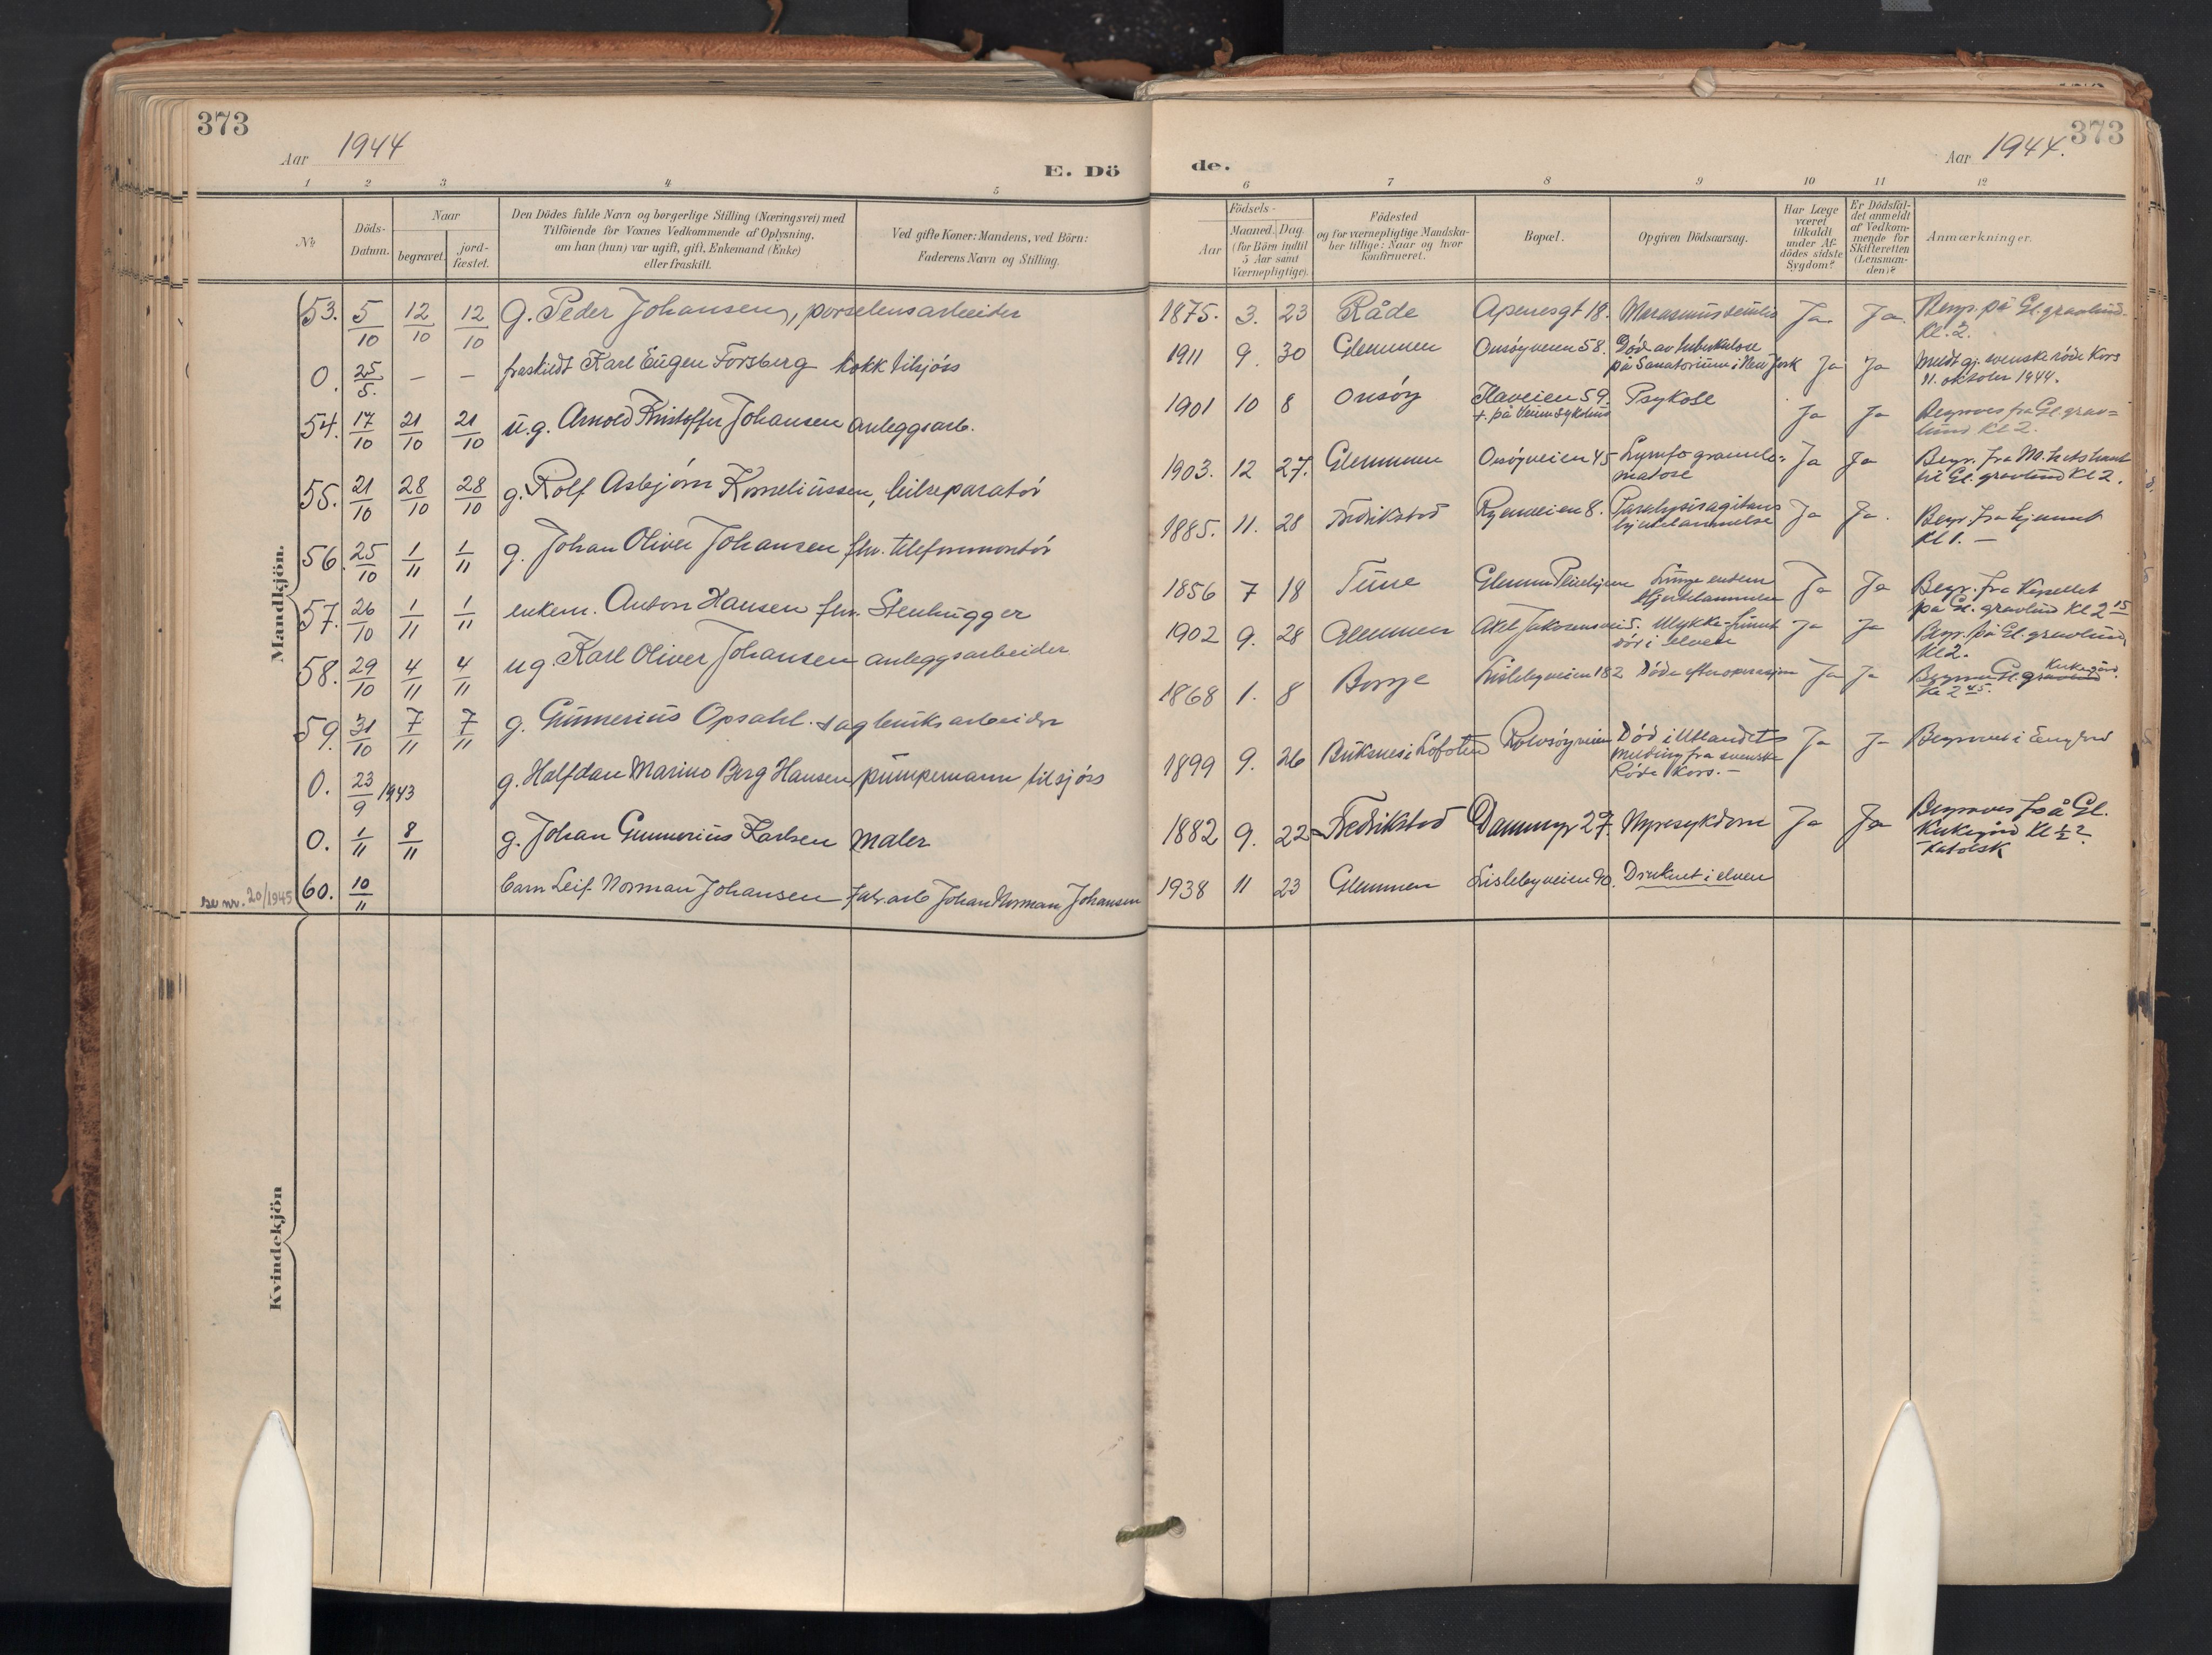 373
Aar 1944
E. Dö
1 2 3 4 5
No
Döds-Datum.
Naar
begravet. jord-fæstet.
Den Dödes fulde Navn og borgerlige Stilling (Næringsvei) med
Tilföiende for Voxnes Vedkommende af Oplysning,
om han (hun) var ugift, gift, Enkemand (Enke)
eller fraskilt.
Ved gifte Koner: Mandens, ved Börn:
Faderens Navn og Stilling.
Mandkjön.
53. 5/10 12/10 12/10 g. Peder Johansen, porselensarbeider
0. 25/5. — — fraskildt Karl Eugen Forsberg kokk tilsjøss
54. 17/10 21/10 21/10 u.g. Arnold Kristoffer Johansen anleggsarb.
55. 21/10 28/10 28/10 g. Rolf Asbjørn Korneliussen, bilreparatør
56. 25/10 1/11 1/11 g. Johan Oliver Johansen fhv. telefonmontør
57. 26/10 1/11 1/11 enkem. Anton Hansen fhv. Stenhugger
58. 29/10 4/11 4/11 ug. Karl Oliver Johansen anleggsarbeider
59. 31/10 7/11 7/11 g. Gunnerius Opsahl. sagbruksarbeider
0. 23/9 1943 g. Halfdan Marino Berg Hansen pumpemann til sjøss
0. 1/11 8/11 g. Johan Gunnerius Karlsen maler
se nr. 20/1945 60. 10/11 barn Leif Norman Johansen fabr.arb Johan Norman Johansen
Kvindekjön
373
Aar 1944.
de.
6 7 8 9 10 11 12
Födsels-
Aar
Maaned. Dag.
(for Börn indtil
5 Aar samt
Værnepligtige).
Födested
og for værnepligtige Mandska-
ber tillige: Naar og hvor
konfirmeret.
Bopæl.
Opgiven Dödsaarsag.
Har Læge
været
tilkaldt
under Af-
dödes sidste
Sygdom?
Er Dödsfal-
det anmeldt
af Vedkom-
mende for
Skifteretten
(Lensman-
den)?
Anmærkninger.
1875. 3. 23 Råde Apenesgt 18. Marasmus senilis Ja Ja. Begr. på Gl. gravlund.
Kl. 2.
1911 9. 30 Glemmen Onsøyveien 58. Død av tuberkulose
på Sanatorium i New York Ja Ja Meldt gj. svenske røde Kors
11. oktober 1944.
1901 10 8 Onsøy Haveien 59. Psykose
Ja Ja Begraves fra Gl. grav=
lund Kl 2.
1903. 12 27. Glemmen Onsøyveien 45 Lymfogranulo=
matose Ja Ja Begr. fra
til Gl. gravlund Kl 2.
1885. 11. 28 Fredrikstad Ryenveien 8. Paralysis agitans
hjertelammelse Ja Ja. Begr. fra hjemmet
Kl 1. —
1856 7 18 Tune Glemmen Pleiehjem
Hjertelammelse Ja Ja Begr. fra Kapellet
på Gl. gravlund Kl 2 15
1902 9. 28 Glemmen Axel Jakobsensvei 5. Ulykke-funnet
død i elven Ja Ja Begr. på Gl. gravlund
Kl 2.
1868 1. 8 Borge Lislebyveien 182 Døde efter operasjon Ja Ja Gl. gravlund Kirkegård.
Kl 2 45.
1899 9. 26 Buksnes i Lofoten Rolvsøyveien Død i Utlandet
melding fra svenske
Røde Kors. — Ja Ja Begravet i England
1882 9. 22 Fredrikstad Dammyr 27. Nyresykdom Ja Ja Begraves på Gl.
Kirkegård Kl 1/2 2
Katolsk
1938 11 23 Glemmen Lislebyveien 90. Druknet i elven